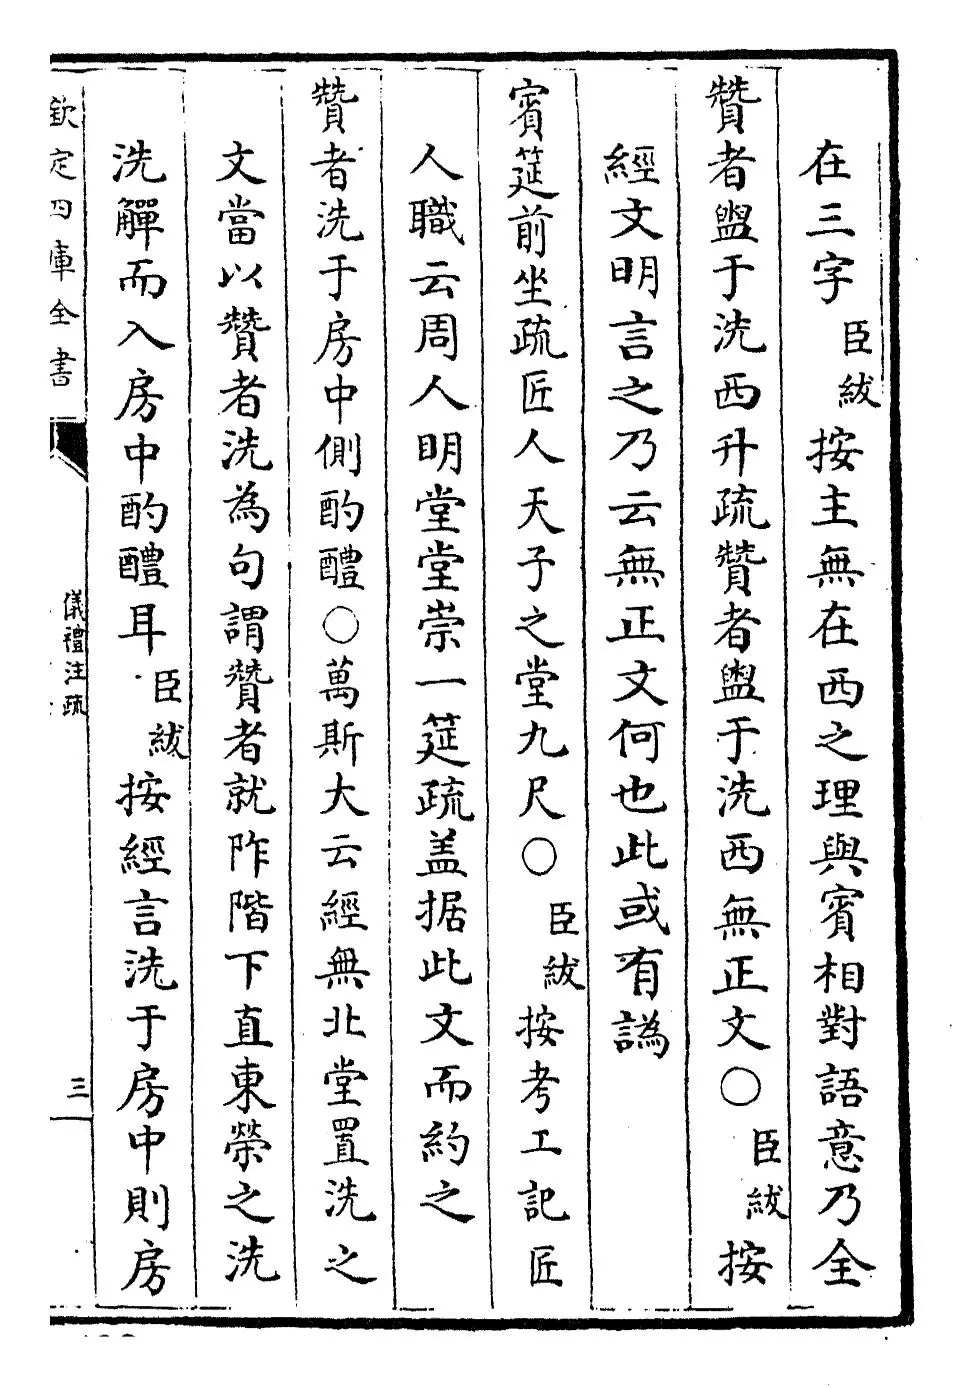 在三字臣紱按主無在西之理與賓相對語意乃全
贊者盥于洗西升疏贊者盥于洗西無正文○臣紱按
經文明言之乃云無正文何也此或有譌
賓筵前坐疏匠人天子之堂九尺○臣紱按考工記匠
人職云周人明堂堂崇一筵疏盖据此文而約之
贊者洗于房中側酌醴○萬斯大云經無北堂置洗之
文當以贊者洗為句謂贊者就阼階下直東榮之洗
洗觶而入房中酌醴耳臣紱按經言洗于房中則房
欽定四庫全書
儀禮注疏
三